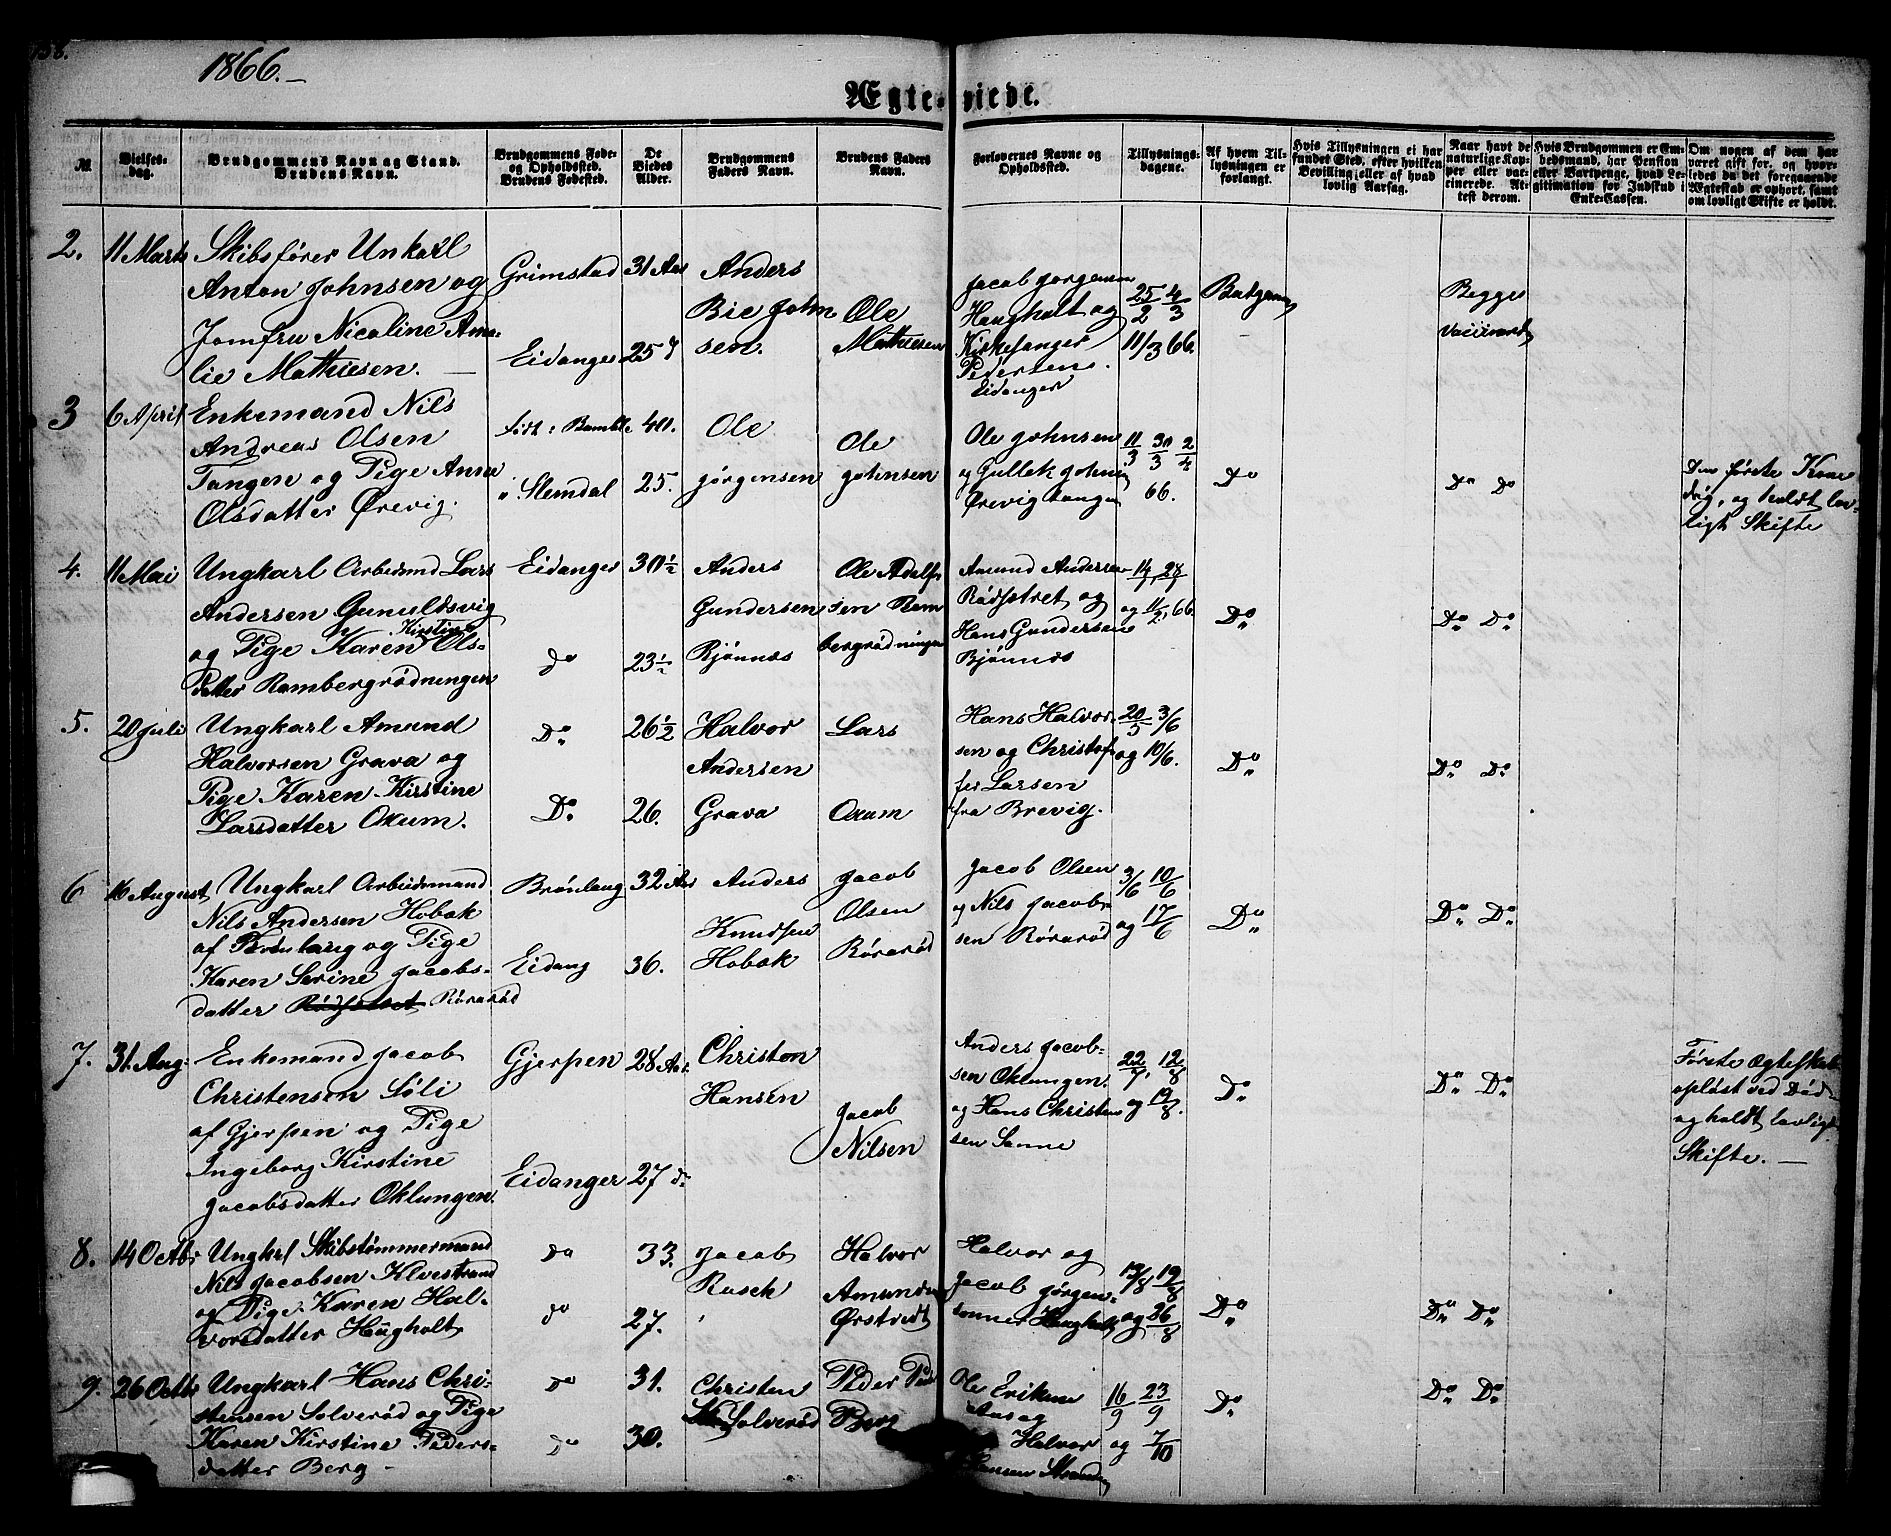 1866.
Ægteviede.
№.
Vielses-dag.
Brudgommens Navn og Stand.
Brudens Navn.
Brudgommens Føde- og Opholdssted.
Brudens Fødested.
De Viedes Alder.
Brudgommens Faders Navn.
Brudens Faders Navn.
Forlovernes Navne og Opholdssted.
Tillysnings-dagene.
Af hvem Tillysningen er forlangt.
Hvis Tillysningen ei har fundet Sted, efter hvilken Bevilling, eller af hvad lovlig Aarsag.
Naar havt de naturlige Kopper eller vaccinerede. Attest derom.
Hvis Brudgommen er Embedsmand, har Pension eller Vartpenge, hvad Legitimation for Indskud i Enke-Cassen.
Om nogen af dem har været gift før, og hvorledes da det foregaaende Ægteskab er ophørt, samt om lovligt Skifte er holdt.
2.
11 Marts
Skibsfører Unkarl
Anton Johnsen og
Jomfru Nicoline Ama-
lie Mathiesen.
Grimstad
Eidanger
31 Aar
25
Anders
Bie John
sen.
Ole
Mathiesen
Jacob Jørgensen
Haugholt og
Kirkesanger
Pedersens.
Eidanger
25/2 4/3
11/3 66.
Begge
3
6 April
Enkemand Nils
Andreas Olsen
Tangen og Pige Anne
Olsdatter Ørevig.
født i Bamble
i Slemdal
40.
25.
Ole
Jørgensen
Ole
Johnsen
Ole Johnsen
og Gullek Johnsen
Ørevig tangen
11/3 30/3 2/4
66.
Do
Do Do
Den første Kone
død, og holdt lov-
ligt Skifte
4.
11 Mai
Ungkarl Arbeidsmand Lars
Andersen Gunuldsvig
og Pige Karen Kirstine Ols-
datter Rambergrødningen
Eidanger
do
30 1/2
23 1/2
Anders
Gundersen
Bjønnes
Ole Adolf
sen Ram
bergrødningen
Amund Andersen
Rødsstret og
Hans Gundersen
Bjønnes
og 11/2 66
Do
Do Do
5.
20 Juli
Ungkarl Amund
Halvorsen Grava og
Pige Karen Kirstine
Larsdatter Oxum.
Do
Do
26 1/2
26.
Halvor
Andersen
Grava
Lars
Oxum
Hans Halvor-
sen og Christof
fer Larsen
fra Brevig.
20/5 3/6
og 10/6.
Do
Do Do
6
16 August
Ungkarl Arbeidsmand
Nils Andersen Hobæk
af Brønlang og Pige
Karen Serine Jacobs-
datter Rørarød
Brønlang
Eidang
32 Aar
36.
Anders
Knudsen
Hobæk
Jacob
Olsen
Rørarød
Jacob Olsen
og Nils Jacob-
sen Rørarød
3/6 10/6
og 17/6
Do
Do Do
7.
31. Aug:
Enkemand Jacob
Christensen Søli
af Gjerpen og Pige
Ingeborg Kirstine
Jacobsdatter Oklungen.
Gjerpen
Eidanger
28 Aar.
27 do
Christen
Hansen
Jacob
Nilsen
Anders Jacob-
sen Oklungen.
og Hans Christen
sen Sanne
22/7, 12/8
og 19/8.
Do
Do Do
Første Ægteskab
opløst ved Død
og holdt lovligt
Skifte.
8.
14 Octbr
Ungkrl Skibstømmermand
Nils Jacobsen Klvestrand
og Pige Karen Hal-
vorsdatter Haugholt
do
do
33.
27.
Jacob
Rasch
Halvor
Amundsen
Ørstvedt
Halvor og
Jacob Jørgen-
sønner Haugholt
13/8 19/8
og 26/8
Do
Do Do
9.
26 Octbr
Ungkarl Hans Chri-
stensen Solverød og Pige
Karen Kirstine Peders-
datter Berg
do
do
31.
30.
Christen
Solverød
Peder Ped
Berg
Ole Eriksen
Aas og
Halvor
Hansen
16/9 23/9
og 7/10
Do
Do Do